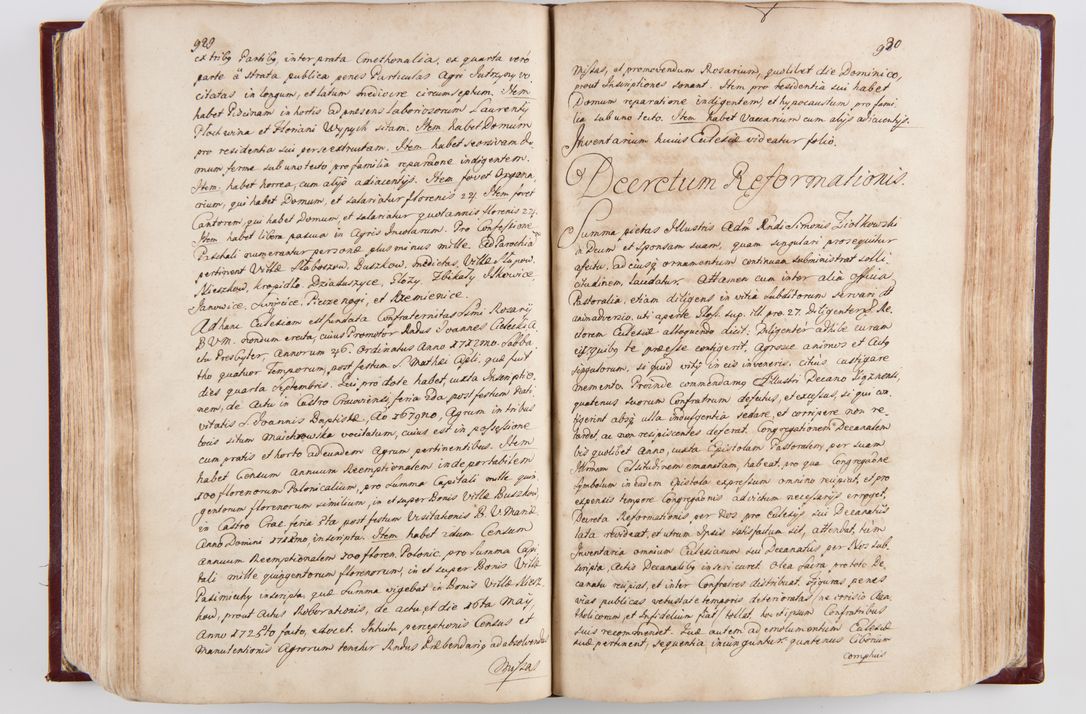 929
ex tribg Partibg, inter prata Cmethonalia, ex quarta verò
parte à strata publica penes Particulas Agri Jutrzyny vo,
citatas in longum, et latum mediocre circumseptum. Item
habet Piscinam in hortis ad præsens laboriosorum Laurentij
et Floriani Wypych sitam. Item habet Domum
pro residentia sui per se extructam. Item habet seorsivam do,
mum ferme sub uno tecto, pro familia reparaõne indigentem.
Item habet horrea, cum alijs adiacentijs. Item fovet Organa,
rium, qui habet Domum, et salariatur florenis 24. Item fovet
Cantorem, qui habet Domum, et salariatur quotannis florenis 24.
Item habet libera pascua in Agris Incolarum. Pro Confessione
Paschali numerantur personæ plus minus mille. Ad Parochiam
pertinent Villæ Słaboszow, Buszkow, Medietas, Villæ Słupow,
Nieszkow, Kropidło, Dziaduszyce, Głożÿ, Zbikały, Ilkowice,
Janowice, Swięcice, Pieczenogi, et Rzemienice.
Ad hanc Eclesiam est fundata Confraternitas Ssmi Rosarij
B.V.M. nondum erecta, cuius Promotor Rndus Joannes
Presbyter, Annorum 46. Ordinatus Anno 1712mo. Sabba,
tho quatuor Temporum, post festum S. Mathei Apli, quæ fuit
dies quarta Septembris. Qui pro dote habet, iuxta Inscriptio,
nem, de Actu in Castro Cracoviensi, feria 2da post festum Nati,
vitatis S. Joannis Baptistæ, Aõ 1679no, Agrum in tribus
locis situm Maichrowska vocitatum, cuius est in possessione
cum pratis et horto ad eundem Agrum pertinentibus. Item
habet Censum Annuum Reemptionalem indeportabilem
100 florenorum Polonicalium, pro Summa Capitali mille quin,
gentorum florenorum similium, in et super Bonis Villæ Buszkow,
in Castro Crac. feria 5ta post festum Visitationis B. V. Mariæ
Anno Domini inscripta. Item habet 2dum Censum
annuum Reemptionalem 100 floren. Polonic. pro Summa Capi
tali mille quingentorum florenorum, in et super Bonis Villæ
inscripta, quæ Summa vigebat in Bonis Villæ Niesz
kow, prout Actus Roborationis, de actu, et die 16ta Maij,
Anno 1725to facto, edocet. Intuitu perceptionis Census et
Manutentionis Agrorum tenetur Rndus Præbendarig ad absolvendas
Missas
930
Missas, et promovendum Rosarium, quolibet die Dominico,
prout Inscriptiones sonant. Item pro residentia sui habet
Domum reparatione indigentem, et hypocaustum pro fami
lia sub uno tecto. Item habet Vaccarium cum alijs adiacentijs.
Inventarium huius Eclesiæ videatur folio.
Decretum Reformationis.
Summa pietas Illustris Adm. Rndi Simonis Ziołkowski
in Deum et Sponsam suam, quam singulari prosequitur
afectu, ad eiusq ornamentum continuam subministrat solli
citudinem, laudatur. Attamen cum inter alia officia
Pastoralia, etiam diligens in vita Subditorum servari det
animadversio, uti aperte Glos. sup. ill pro. 27. Diligenter p. Re,
ctorem Eclesiæ alloquendo dicit. Diligenter adhibe curam
eis, quibg te præesse contigerit. Agnosce animos et Actg
singulorum, si quid vitij in eis inveneris, citius castigare
memento. Proinde commendamg Illustri Decano Xiąznensi,
quatenus suorum Confratrum defectus, et excessus, si qui con,
tigerint absq ulla indulgentia sedare, et corripere non re,
tardet, ac non resipiscentes deferat. Congregationem Decanalem
bis quolibet Anno, iuxta Epistolam Pastoralem, per suam
Illrmam Celsitudinem emanatam, habeat, pro qua Congregaõne
symbolum in eadem Epistola expressum omnino recipiat, et pro
expensis tempore Congregaõnis ad victum necessarijs eroget.
Decreta Reformationis per Nos pro Eclesijs sui Decanatus
lata revideat, et utrum Ipsis satisfactum sit, attendat, tùm
Inventaria omnium Eclesiarum sui Decanatus per Nos sub,
scripta, Actis Decanalibg inseri curet. Olea Sacra pro toto De,
canatu recipiat, et inter Confratres distribuat. Figuras penes
vias publicas vetustate temporis deterioratas, ne irrisio Aca,
tholicorum, et Infidelium fiat, tollat, hoc et ipsum Confratribus
suis recommendet. Quæ autem ad emolumentum Eclesiæ
suæ pertinent, sequentia iniunguntur. quatenus Ciborium
compluis